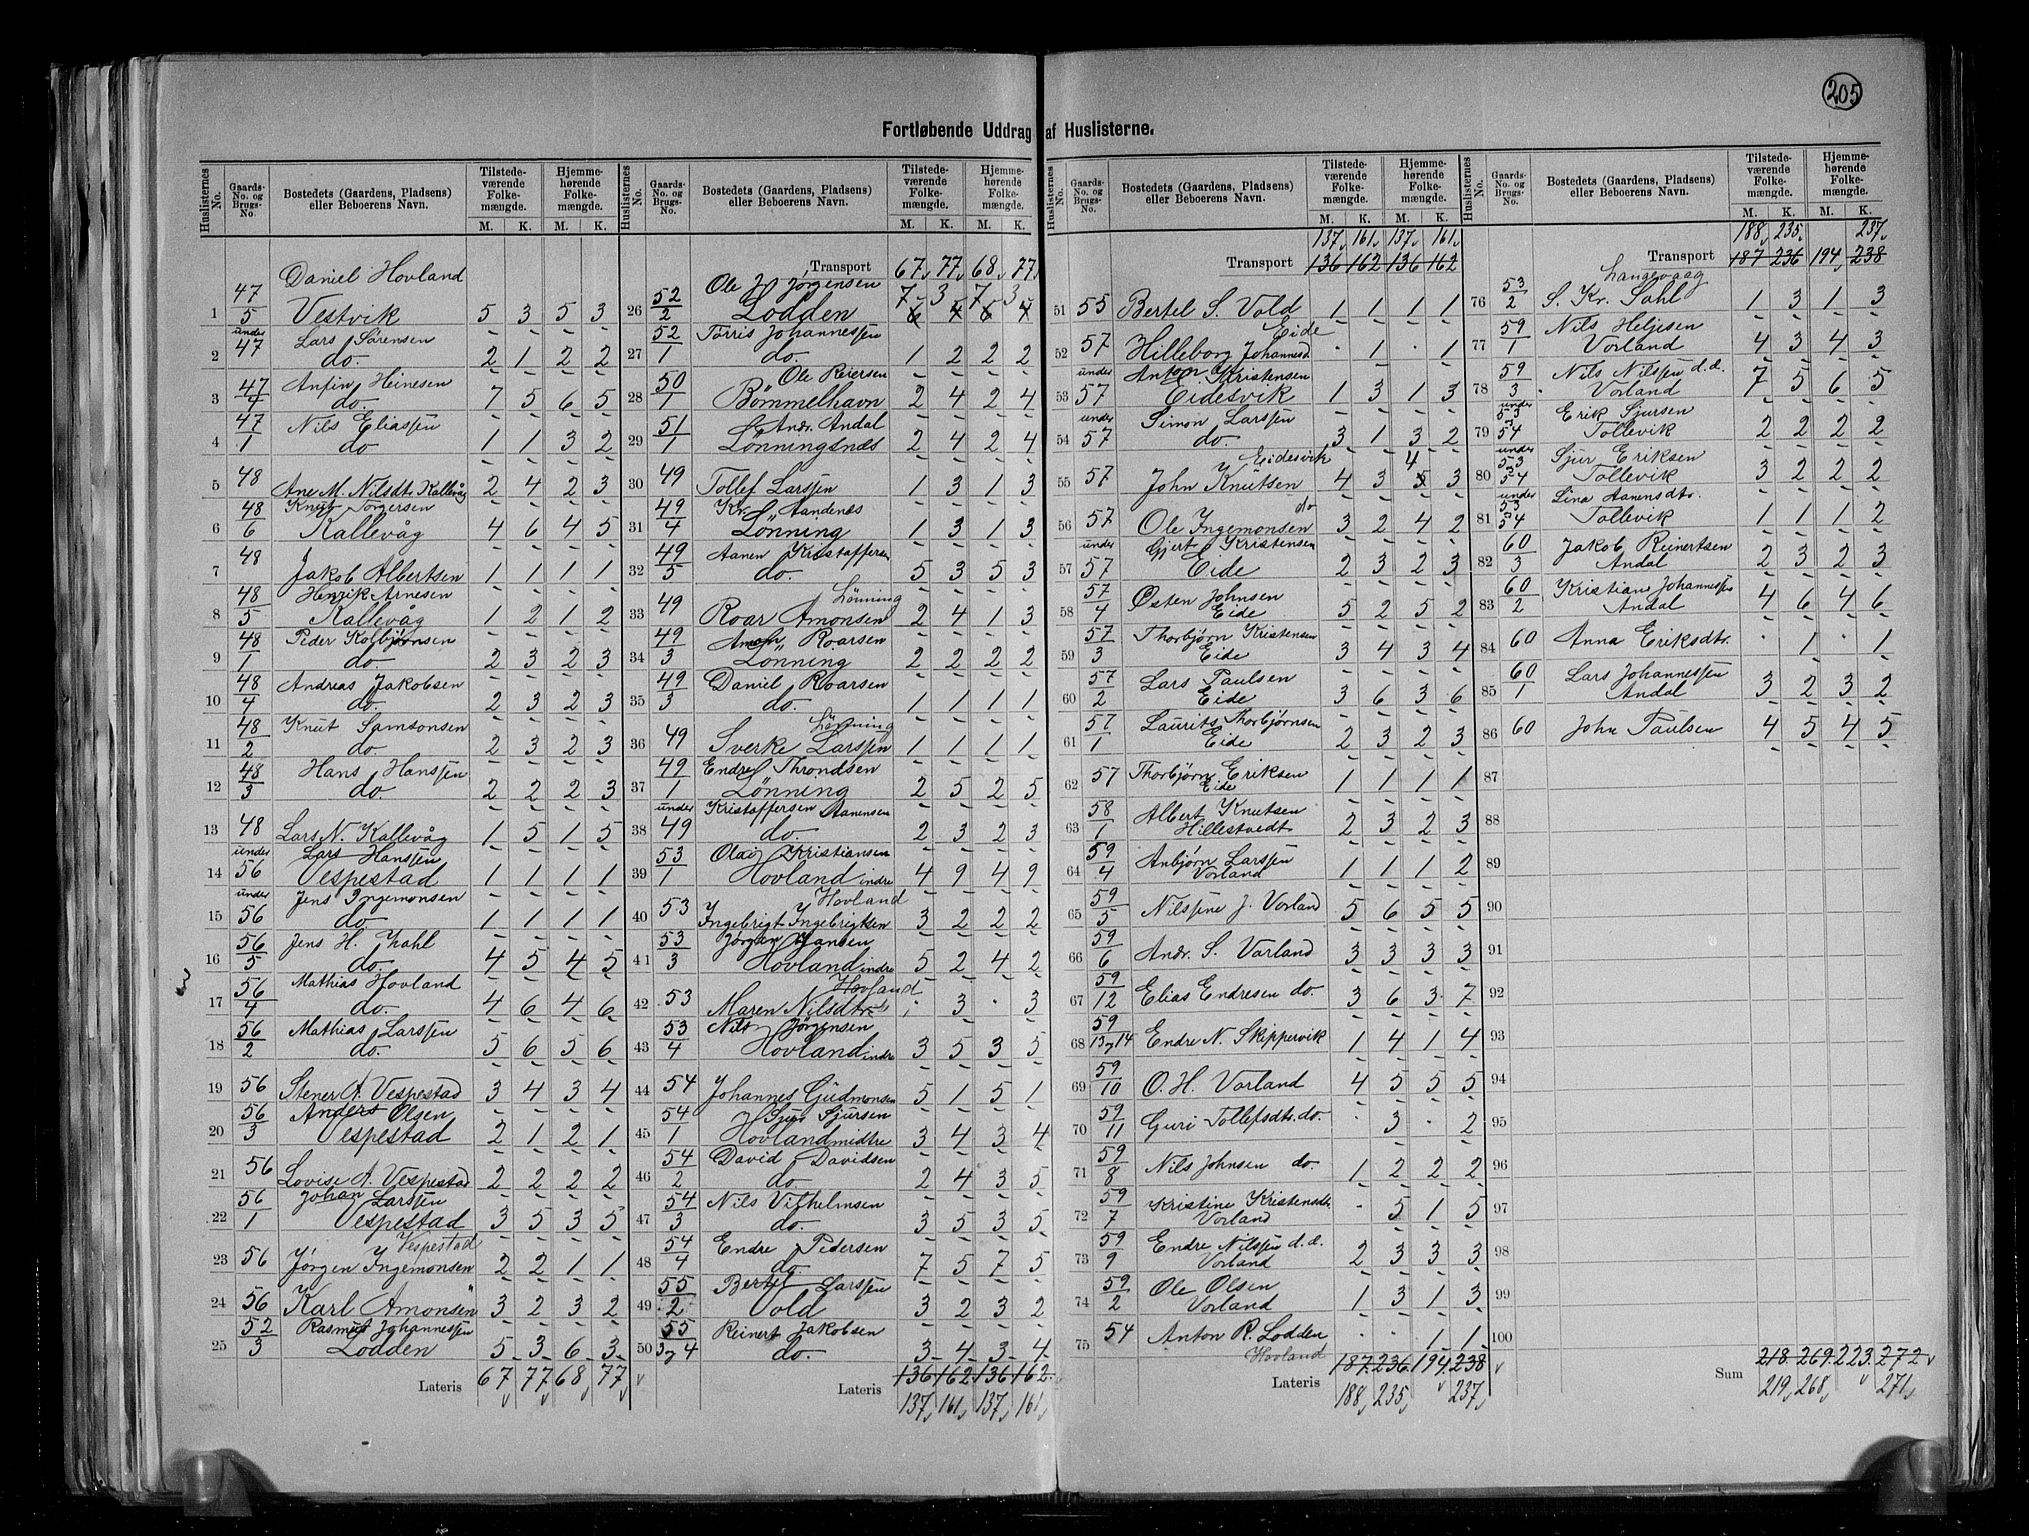 205
Fortløbende Uddrag af Huslisterne.
Huslisternes No. Gaards-No. og Brugs-No. Bostedets (Gaardens, Pladsens) eller Beboerens Navn. Tilstedeværende Folkemængde. M. K. Hjemmehørende Folkemængde. M. K.
1 47/5 Daniel Hovland Vestvik 5 3 5 3
2 under 47 Lars Sørensen do. 2 1 2 2
3 47/4 Anfin Heinesen do. 7 5 6 5
4 47/1 Nils Eliassen do 1 1 3 2
5 48 Ane M. Nilsdtr Kallevåg 2 4 2 3
6 48/6 Knut Torgersen Kallevåg 4 6 4 5
7 48 Jakob Albertsen 1 1 1 1
8 48/5 Henrik Arnesen Kallevåg 1 2 1 2
9 48/1 Peder Kolbjørnsen do. 2 3 2 3
10 48/4 Andreas Jakobsen do. 2 3 2 3
11 48/2 Knut Samsonsen do. 2 3 2 3
12 48/3 Hans Hanssen do. 2 2 2 3
13 48 Lars N. Kallevåg 1 5 1 5
14 under 56 Lars Hanssen Vespestad 1 1 1 1
15 under 56 Jens Ingemonsen do. 1 1 1 1
16 56/5 Jens H. Zahl do. 4 5 4 5
17 56/4 Mathias Hovland do. 4 6 4 6
18 56/2 Mathias Larssen do. 5 6 5 6
19 56 Stener A. Vespestad 3 4 3 4
20 56/3 Anders Olsen Vespestad 2 1 2 1
21 56 Lovise A. Vespestad 2 2 2 2
22 56/1 Johan Larssen Vespestad 3 5 3 5
23 56 Jørgen Ingemonsen Vespestad 2 2 1 1
24 56 Karl Amonsen " 3 2 3 2
25 52/3 Rasmus Johannessen Lodden 5 3 6 3
Lateris 67 77 68 77
Huslisternes No. Gaards-No. og Brugs-No. Bostedets (Gaardens, Pladsens) eller Beboerens Navn. Tilstedeværende Folkemængde. M. K. Hjemmehørende Folkemængde. M. K.
Transport 67 77 68 77
26 52/2 Ole J. Jørgensen Lodden 7 3 7 3 6 4 6 4
27 52/1 Torris Johannessen do. 1 2 2 2
28 50/1 Ole Reiersen Bömmelhavn 2 4 2 4
29 51/1 Andr. Andal Lönningsnæs 2 4 2 4
30 49 Tollef Larssen 1 3 1 3
31 49/4 Kr. Aandenæs Lönning 1 3 1 3
32 49/5 Aanen Kristoffersen do. 5 3 5 3
33 49 Roar Amonsen Lönning 2 4 1 3
34 49/3 Roarsen Lönning 2 2 2 2
35 49/3 Daniel Roarsen do. 1 1 1 1
36 49 Sverke Larssen Lönning 1 1 1 1
37 49/1 Endre Throndsen Lönning 2 5 2 5
38 under 49 Kristoffersen Aanensen do. 2 3 2 3
39 53/1 Olai Kristiansen Hovland indre 4 9 4 9
40 53 Ingebrigt Ingebrigtsen Hovland 3 2 2 2
41 53/3 Jørgen Hansen Hovland indre 5 2 4 2
42 53 Maren Nilsdtr. Hovland · 3 · 3
43 53/4 Nils Jørgensen Hovland indre 3 5 3 5
44 54 Johannes Gudmonsen 5 1 5 1
45 54/1 Sjur Sjursen Hovland midtre 3 4 3 4
46 54/2 David Davidsen do. 2 4 3 5
47 54/3 Nils Vilhelmsen do. 3 5 3 5
48 54/4 Endre Pedersen do. 7 5 7 5
49 55/2 Bertel Larssen Vold 3 2 3 2
50 55/3 og 4 Reinert Jakobsen do. 3 4 3 4
Lateris 136 162 136 162
137 161 137 161
Huslisternes No. Gaards-No. og Brugs-No. Bostedets (Gaardens, Pladsens) eller Beboerens Navn. Tilstedeværende Folkemængde. M. K. Hjemmehørende Folkemængde. M. K.
137 161 137 161
Transport 136 162 136 162
51 55 Bertel S. Vold 1 1 1 1
52 57 Hilleborg Johannesd. Eide · 1 · 1
53 under 57 Anton Kristensen Eidesvik 1 3 1 3
54 under 57 Simon Larssen do. 3 1 3 2
55 57 John Knutsen Eidesvik 4 3 4 5 3
56 57 Ole Ingemonsen do 3 2 4 2
57 under 57 Gjert Kristensen Eide 2 3 2 3
58 57/4 Østen Johnsen Eide 5 2 5 2
59 57/3 Thorbjørn Kristensen Eide 3 4 3 4
60 57/2 Lars Paulsen Eide 3 6 3 6
61 57/1 Laurits Thorbjørnsen Eide 2 3 2 3
62 57 Thorbjørn Eriksen Eide 1 1 1 1
63 58/1 Albert Knutsen Hillestvedt 2 3 2 3
64 59/4 Anbjørn Larssen Vorland 1 1 1 2
65 59/5 Nilssine J. Vorland 5 6 5 5
66 59/6 Andr. S. Vorland 3 3 3 3
67 59/12 Elias Endresen do. 3 6 3 7
68 59/13 og 14 Endre N. Skippervik 1 4 1 4
69 59/10 O. H. Vorland 4 5 5 5
70 59/11 Guri Tollefsdtr. do. · 3 · 2
71 59/8 Nils Johnsen do. 1 2 2 2
72 59/7 Kristine Kristensdtr. Vorland · 5 1 5
73 59/9 Endre Nilssen d.e. Vorland 2 3 3 3
74 59/2 Ole Olsen Vorland 1 3 1 3
75 54 Anton R. Lodden Hovland · · 1 1
Lateris 187 236 194 238
188 235 237
Huslisternes No. Gaards-No. og Brugs-No. Bostedets (Gaardens, Pladsens) eller Beboerens Navn. Tilstedeværende Folkemængde. M. K. Hjemmehørende Folkemængde. M. K.
188 235 237
Transport 187 236 194 238
76 53/2 Langevaag S. Kr. Sahl 1 3 1 3
77 59/1 Nils Heljesen Vorland 4 3 4 3
78 59/3 Nils Nilssen d.e. Vorland 7 5 6 5
79 under 53 54 Erik Sjursen Tollevik 2 2 2 2
80 under 53 54 Sjur Eriksen Tollevik 3 2 2 2
81 under 53 54 Lina Aanensdtr. Tollevik 1 1 1 2
82 60/3 Jakob Reinertsen Andal 2 3 2 3
83 60/2 Kristian Johannessen Andal 4 6 4 6
84 60 Anna Eriksdtr. · 1 · 1
85 60/1 Lars Johannessen Andal 3 2 3 2
86 60 John Paulsen 4 5 4 5
87
88
89
90
91
92
93
94
95
96
97
98
99
100
Sum 218 269 223 272
219 268 271